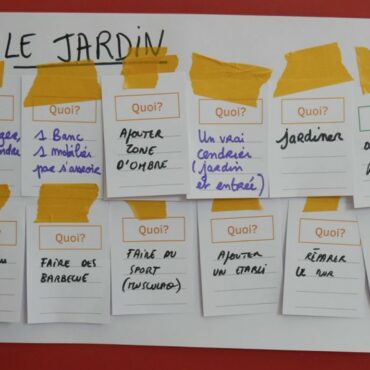 LE JARDIN
Quoi?
1 Banc
1 mobilier
par s'assoir
Quoi?
AJOUTER
ZONE
D'OMBRE
Quoi?
Un vrai
cendrier
(jardin
et entrée)
Quoi?
jardiner
Quoi?
FAIRE DES
BARBECUE
Quoi?
FAIRE DU
SPORT
(MUSCULAO)
Quoi?
AJOUTER
UN ETABLI
Quoi?
RÉPARER
LE MUR